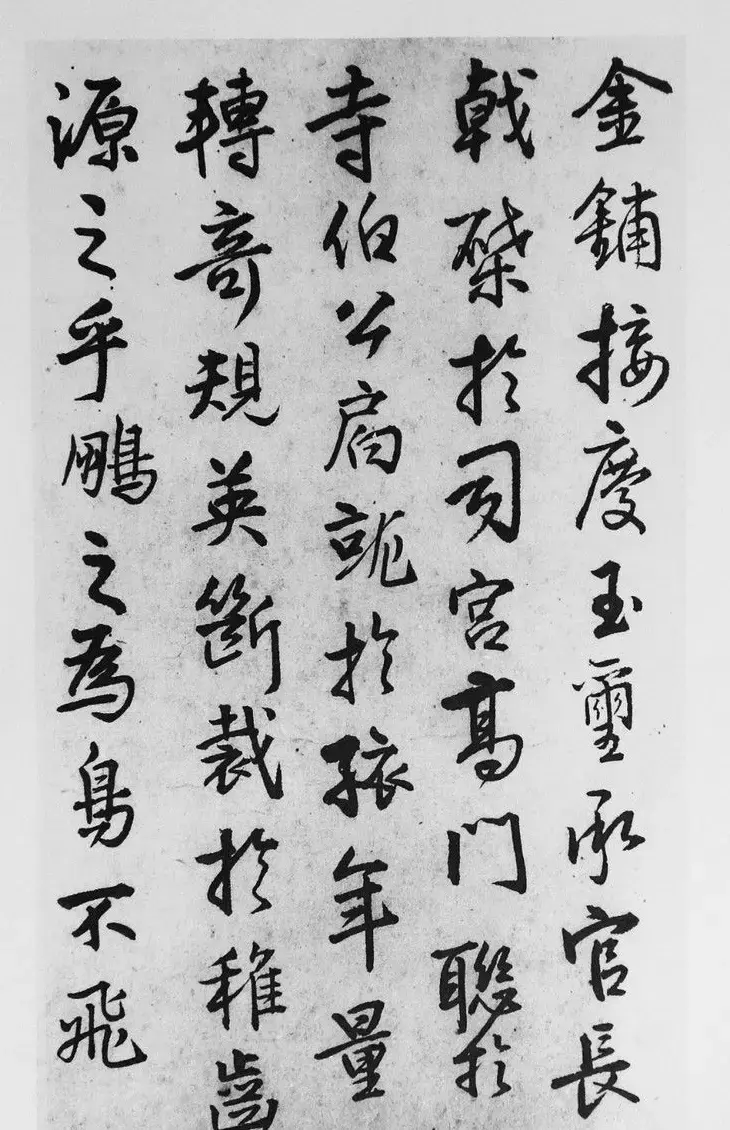 金鋪接慶玉璽承官長
戟於司宮高門聯於
寺伯公於孩年量
轉竒規英斷裁於稚齒
源之乎鵬之為鳥不飛